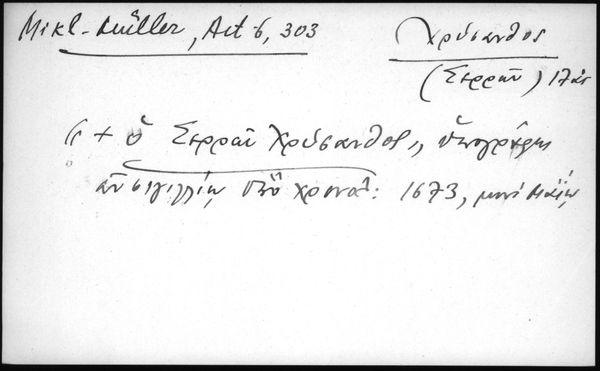 Mikl-Müller, Act 6, 303
Χρύσανθος
(Σερρῶν) 17ος
"+ ὁ Σερρῶν Χρύσανθος", ὑπογράφει
ἐν σιγιλλίῳ ὑπὸ χρονολ: 1673, μηνὶ Μαΐῳ